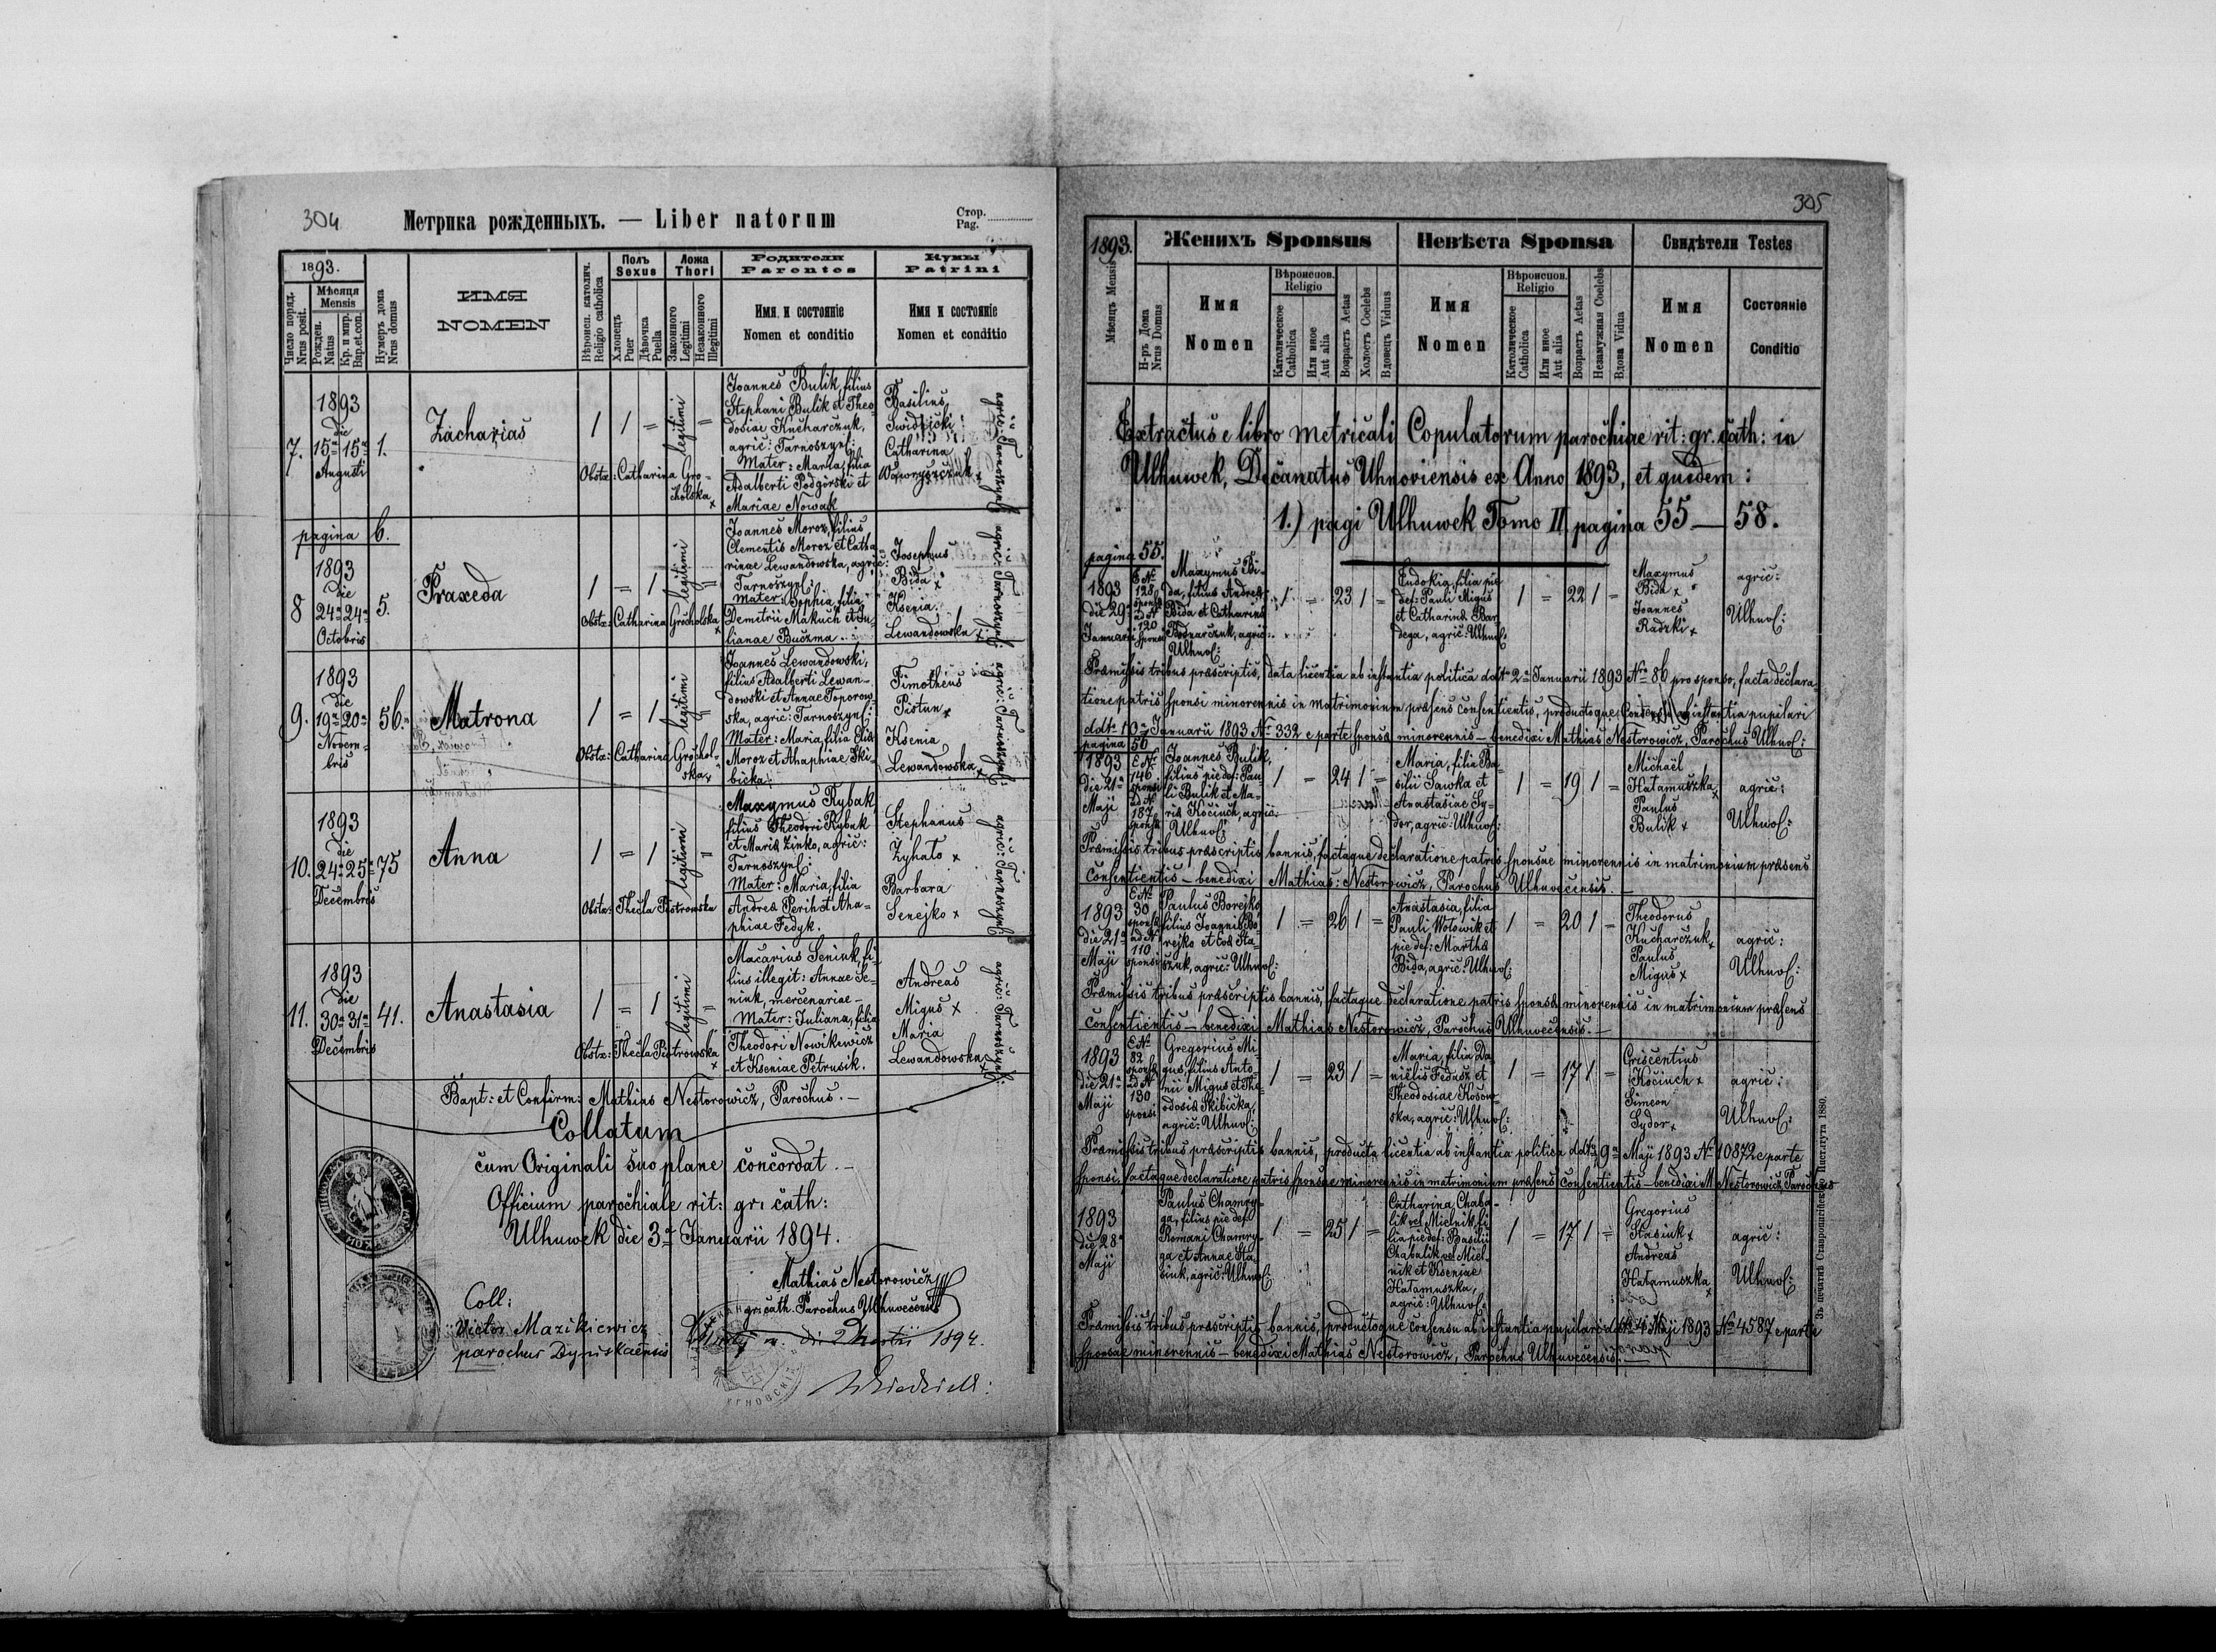 304
Метрика рожденныхъ. — Liber natorum
Стор.
Pag.
1893.
Число поряд.
Nrus posit.
Мѣсяця
Mensis
Рожден.
Natus
Кр. и мир.
Bap. et. con.
Нумеръ дома
Nrus domus
ИМЯ
NOMEN
Вѣроисп. католич.
Religio catholica
Полъ
Sexus
Хлопецъ
Puer
Дѣвочка
Puella
Ложа
Thori
Законного
Legitimi
Незаконного
Illegitimi
Родители
Parentes
Имя и состояніе
Nomen et conditio
Кумы
Patrini
Имя и состояніе
Nomen et conditio
7.
1893
die
15a 15a
Augusti
1.
Zacharias
1 1 = legitimi =
Obstx: Catharina Gro-
cholska x
Joannes Bulik, filius
Stephani Bulik et Theo-
dosiae Kucharczuk,
agric: Tarnoszyns:
Mater: Maria, filia
Adalberti Podgórski et
Mariae Nowak
Basilius
Swidzicki
Catharina
agric: Tarnoszyns:
pagina 6.
8
1893
die
24a 24a
Octobris
5.
Praxeda
1 = 1 legitimi =
Obstx: Catharina Grocholska x
Joannes Moroz, filius
Clementis Moroz et Catha-
rinae Lewandowska, agric:
Tarnoszyns:
Mater: Sophia, filia
Demetrii Makuch et Ju-
lianae Buczma
Josephus
Bida x
Ksenia
Lewandowska x
agric: Tarnoszyns:
9.
1893
die
19a 20a
Novem-
bris
56.
Matrona
1 = 1 legitimi =
Obstx: Catharina Grochol-
ska x
Joannes Lewandowski,
filius Adalberti Lewan-
dowski et Annae Toporow-
ska, agric: Tarnoszyns:
Mater: Maria, filia Eliae
Moroz et Ahaphiae Ski-
bicka
Timotheus
Pistun x
Ksenia
Lewandowska x
agric: Tarnoszyns:
10.
1893
die
24a 25a
Decembris
75
Anna
1 = 1 legitimi =
Obstx: Thecla Piotrowska
Maxymus Rybak,
filius Theodori Rybak
et Mariae Zinko, agric:
Tarnoszyns:
Mater: Maria, filia
Andreae Perih et Aha-
phiae Fedyk.
Stephanus
Zyhalo x
Barbara
Senejko x
agric: Tarnoszyns:
11.
1893
die
30a 31a
Decembris
41.
Anastasia
1 = 1 legitimi =
Obstx: Thecla Piotrowska
x
Macarius Seniuk, fi-
lius illegit: Annae Se-
niuk, mercenariae —
Mater: Juliana, filia
Theodori Nowikewicz
et Kseniae Petrusik.
Andreas
Migus x
Maria
Lewandowska x
agric: Tarnoszyns:
Bapt: et Confirm: Mathias Nestorowicz, Parochus. —
Collatum
cum Originali suo plane concordat. —
Officium parochiale rit: gr: cath:
Ulhuwek die 3a Januarii 1894.
Mathias Nestorowicz
gr: cath. Parochus Ulhuvecensis
Coll:
Victor Mazikiewicz
parochus Dyniskaensis
1894.
305
1893.
Мѣсяцъ Mensis
Женихъ Sponsus
Н-ръ Дома
Nrus Domus
Имя
Nomen
Вѣроиспов.
Religio
Католическое
Catholica
Или иное
Aut alia
Возрастъ Aetas
Холостъ Coelebs
Вдовецъ Viduus
Невѣста Sponsa
Имя
Nomen
Вѣроиспов.
Religio
Католическое
Catholica
Или иное
Aut alia
Возрастъ Aetas
Незамужная Coelebs
Вдова Vidua
Свидѣтели Testes
Имя
Nomen
Состояніе
Conditio
Extractus e libro metricali Copulatorum parochiae rit: gr. cath: in
Ulhuwek, Decanatus Uhnoviensis ex Anno 1893, et quidem:
1.) pagi Ulhuwek Tomo II pagina 55 — 58.
pagina 55.
1893
die 29a
Januarii
E No
128
sponsae
ad No
120
sponsi
Maxymus Bi-
da, filius Andreae
Bida et Catharinae
Bodnarczuk, agric:
Ulhuvs:
1 = 23 1 =
Eudokia, filia pie
def: Pauli Migus
et Catharinae Bar-
dega, agric: Ulhuvs:
1 = 22 1 =
Maxymus
Bida x
Joannes
Radzki x
agric:
Ulhuvs:
Praemissis tribus praescriptis, data licentia ab instantia politica ddto 2a Januarii 1893 No 86 pro sponso, facta declara-
tione patris sponsi minorennis in matrimonium praesens consentientis, productoque Consensu ab instantia pupilari
ddto 10a Januarii 1893 No 332 e parte sponsae minorennis — benedixi Mathias Nestorowicz, Parochus Ulhuvs:
pagina 56
1893
die 21a
Maji
E No
146
sponsi
ad No
187
sponsae
Joannes Bulik,
filius pie def: Pau-
li Bulik et Ma-
riae Kociuch, agric:
Ulhuvs:
1 = 24 1 =
Maria, filia Ba-
silii Sawka et
Anastasiae Sy-
dor, agric: Ulhuvs:
1 = 19 1 =
Michaël
Hatamuszka x
Paulus
Bulik x
agric:
Ulhuvs:
Praemissis tribus praescriptis bannis, factaque declaratione patris sponsae minorennis in matrimonium praesens
Consentientis — benedixi Mathias Nestorowicz, Parochus Ulhuvecensis. —
1893
die 21a
Maji
E No
30
sponsae
ad No
110
sponsi
Paulus Borejko
filius Joannis Bo-
rejko et Evae Sta-
szuk, agric: Ulhuvs:
1 = 26 1 =
Anastasia, filia
Pauli Wolowik et
pie def: Marthae
Bida, agric: Ulhuvs:
1 = 20 1 =
Theodorus
Kucharczuk x
Paulus
Migus x
agric:
Ulhuvs:
Praemissis tribus praescriptis bannis, factaque declaratione patris sponsae minorennis in matrimonium praesens
Consentientis — benedixi Mathias Nestorowicz, Parochus Ulhuvecensis. —
1893
die 21a
Maji
E No
82
sponsae
ad No
130
sponsi
Gregorius Mi-
gus, filius Anto-
nii Migus et The-
odosiae Skibicka,
agric: Ulhuvs:
1 = 23 1 =
Maria, filia Da-
nielis Fedasz et
Theodosiae Kosow-
ska, agric: Ulhuvs:
1 = 17 1 =
Criscentius
Kociuch x
Simeon
Sydor x
agric:
Ulhuvs:
Praemissis tribus praescriptis bannis, producta licentia ab instantia politica ddto 9a Maji 1893 No 10872 e parte
sponsi, factaque declaratione patris sponsae minorennis in matrimonium praesens Consentientis — benedixi M. Nestorowicz, Parochus
1893
die 28a
Maji
Paulus Chamry-
ga, filius pie def:
Romani Chamry-
ga et Annae Sta-
siuk, agric: Ulhuvs:
1 = 25 1 =
Catharina Chaba-
lik vel Mielnik, fi-
lia pie def: Basilii
Chabalik vel Miel-
nik et Kseniae
Hatamuszka,
agric: Ulhuvs:
1 = 17 1 =
Gregorius
Stasiuk x
Andreas
Hatamuszka
x
agric:
Ulhuvs:
Praemissis tribus praescriptis bannis, productoque consensu ab instantia pupilari ddto 4 Maji 1893 No 4587 e parte
sponsae minorennis — benedixi Mathias Nestorowicz, Parochus Ulhuvecensis. —
Зъ печатнѣ Ставропигійского Института 1880.